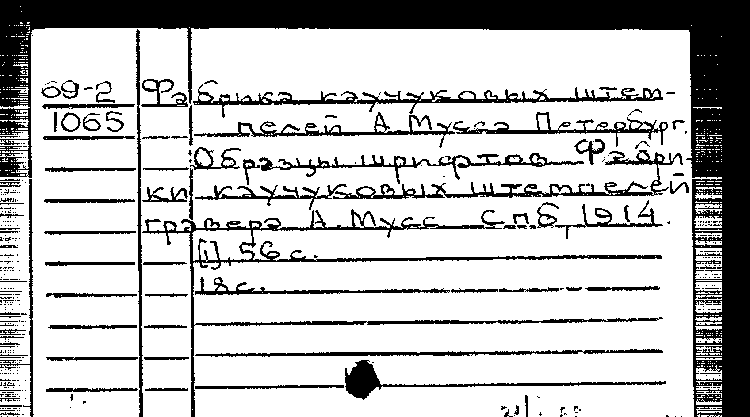 69-2 Фабрика каучуковых штем-
1065 пелей А. Мусса Петербург.
Образцы шрифтов Фабри-
ки каучуковых штемпелей
гравера А. Мусс СПб, 1914.
[1], 56 с.
18с.